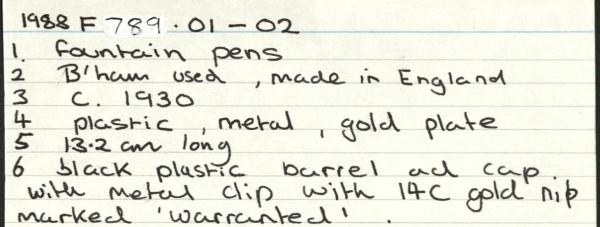 1988 F 789.01-02
1. fountain pens
2 B'ham used, made in England
3 C. 1930
4 plastic, metal, gold plate
5 13.2 cm long
6 black plastic barrel ad cap.
with metal clip with 14C gold nib
marked 'warranted'.